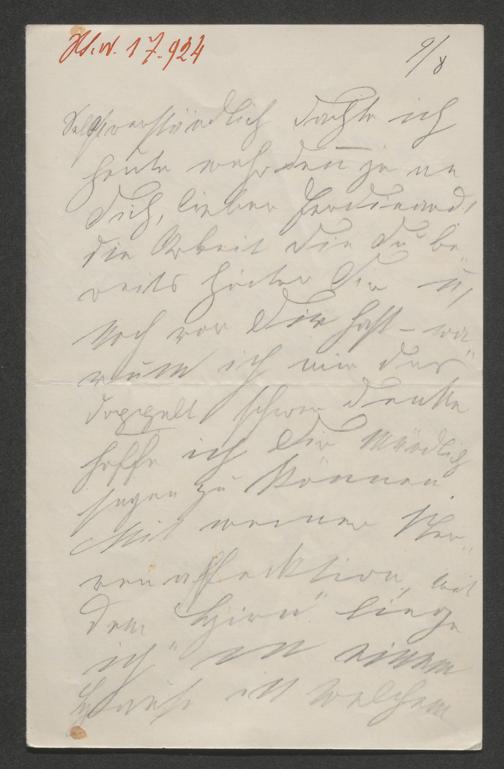 H.I.N. 17.924
9/8
Selbstverständlich dachte ich
heute mehr denn je an
Dich, lieber Ferdinand,
die Arbeit die Du be„
reits hinter Dir u,
noch vor Dir hast – wa„
rum ich mir das
doppelt schwer denke
hoffe ich Dir mündlich
sagen zu können.
Mit meiner Ner„
venaffecktion, mit
dem "Hirn" liege
ich in einem
Hause in welchem